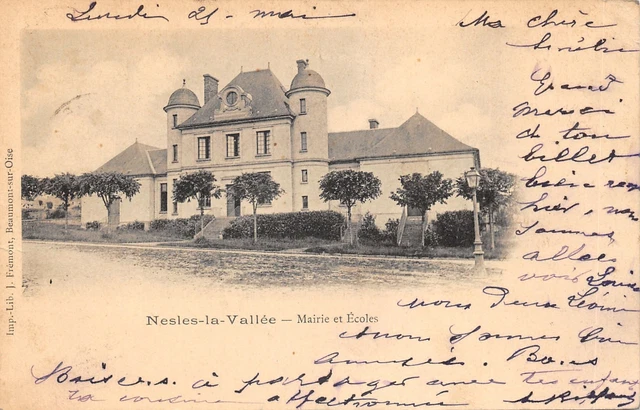 Lundi 25 mai
Ma chère
Grand
merci
de ton
billet
bien reçu
hier, nous
sommes
allées
voir Louise
nous deux Léonie
nous sommes bien
amusés. Bons
Baisers à partager avec tes enfants
ta cousine affectionnée
Nesles-la-Vallée — Mairie et Écoles
Imp.-Lib. J. Frémont, Beaumont-sur-Oise